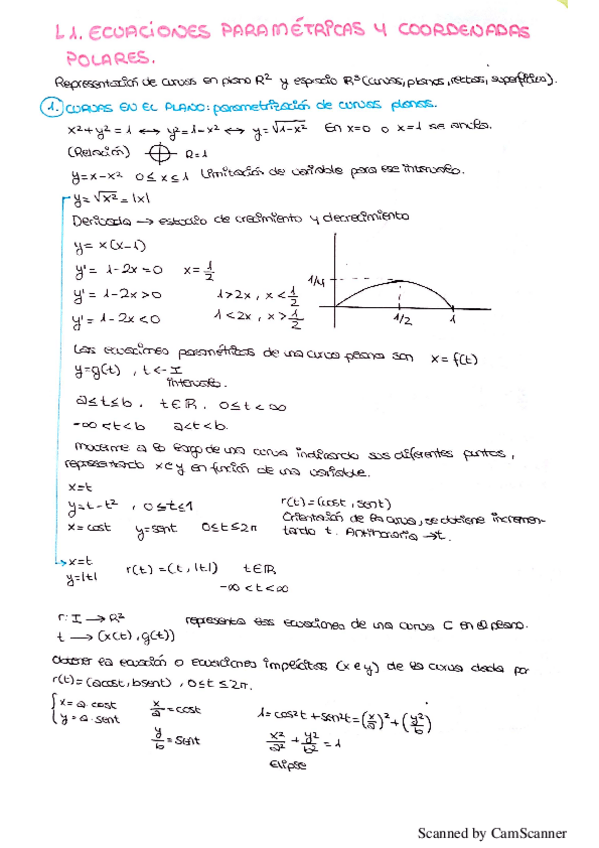 L1. ECUACIONES PARAMÉTRICAS Y COORDENADAS
POLARES.
Representación de curvas en plano R² y espacio R³ (curvas, planos, rectas, superficies).
1. CURVAS EN EL PLANO: parametrización de curvas planas.
x²+y²=1 ↔ y²=1-x² ↔ y=√1-x² En x=0 o x=1 se anula.
(Relación) R=1
y=x-x² 0≤x≤1 Limitación de variable para ese intervalo.
y=√x²=|x|
Derivada → estudio de crecimiento y decrecimiento
y=x(x-1)
y'=1-2x=0 x=1/2
y'=1-2x>0 1>2x, x<1/2
y'=1-2x<0 1<2x, x>1/2
1/4
1/2 1
Las ecuaciones paramétricas de una curva plana son x=f(t)
y=g(t), t<-I
intervalo.
a≤t≤b. t∈R. 0≤t<∞
-∞<t<b a<t<b.
moverme a lo largo de una curva indicando sus diferentes puntos,
representando x e y en función de una variable.
x=t
y=t-t², 0≤t≤1 r(t)=(cost, sent)
x=cost y=sent 0≤t≤2π Orientación de la curva, se obtiene incremen-
tando t. Antihorario →t.
x=t
y=|t| r(t)=(t,|t|) t∈R.
-∞<t<∞
r: I → R² representa las ecuaciones de una curva C en el plano.
t → (x(t), g(t))
Obtener la ecuación o ecuaciones implícitas (x e y) de la curva dada por
r(t)=(acost, bsent), 0≤t≤2π.
x=a·cost x/a=cost 1=cos²t+sen²t=(x/a)²+(y²/b)
y=a·sent y/b=sent x²/a²+y²/b²=1
Elipse
Scanned by CamScanner